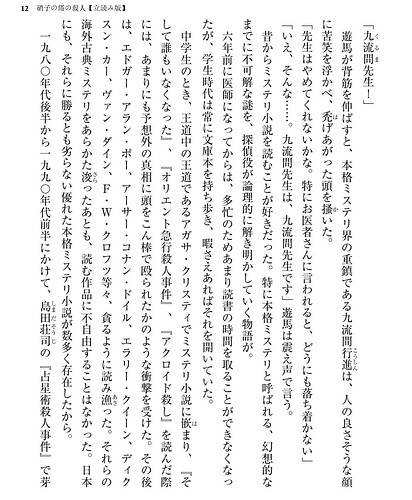 12 硝子の塔の殺人【立読み版】
「九流間先生！」
　遊馬が背筋を伸ばすと、本格ミステリ界の重鎮である九流間行進は、人の良さそうな顔
に苦笑を浮かべ、禿げあがった頭を掻いた。
「先生はやめてくれないかな。特にお医者さんに言われると、どうにも落ち着かない」
「いえ、そんな……。九流間先生は、九流間先生です」遊馬は震え声で言う。
　昔からミステリ小説を読むことが好きだった。特に本格ミステリと呼ばれる、幻想的な
までに不可解な謎を、探偵役が論理的に解き明かしていく物語が。
　六年前に医師になってからは、多忙のためあまり読書の時間を取ることができなくなっ
たが、学生時代は常に文庫本を持ち歩き、暇さえあればそれを開いていた。
　中学生のとき、王道中の王道であるアガサ・クリスティでミステリ小説に嵌まり、『そ
して誰もいなくなった』、『オリエント急行殺人事件』、『アクロイド殺し』を読んだ際
には、あまりにも予想外の真相に頭をこん棒で殴られたかのような衝撃を受けた。その後
は、エドガー・アラン・ポー、アーサー・コナン・ドイル、エラリー・クイーン、ディク
スン・カー、ヴァン・ダイン、F・W・クロフツ等々、貪るように読み漁った。それらの
海外古典ミステリをあらかた浚ったあとも、読む作品に不自由することはなかった。日本
にも、それらに勝るとも劣らない優れた本格ミステリ小説が数多く存在したから。
　一九八〇年代後半から一九九〇年代前半にかけて、島田荘司の『占星術殺人事件』で芽